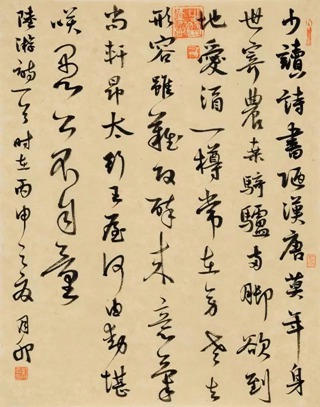 少讀詩書陋漢唐莫年身
世寄農桑騎驢兩脚欲到
地愛酒一樽常在旁老去
形容雖變改醉來意氣
尚軒昂太行王屋何由動堪
咲愚公不自量
陸游詩一首時在丙申之夏月卯